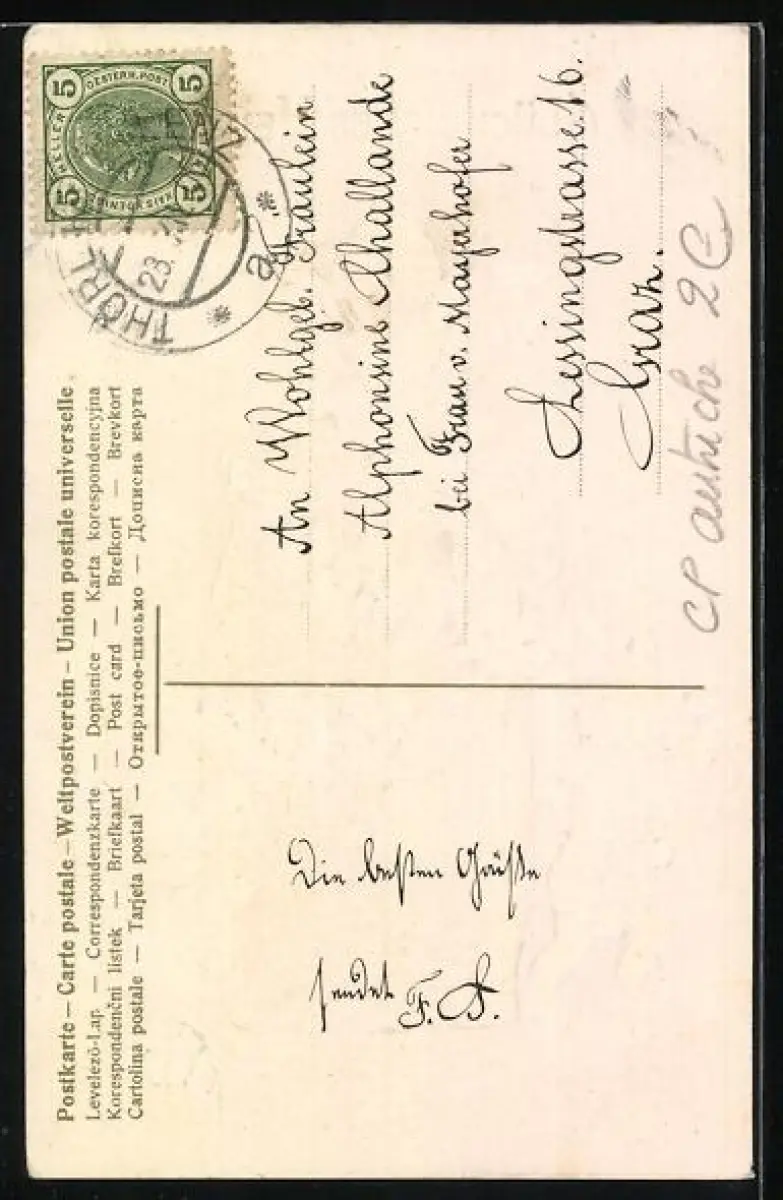 Postkarte — Carte postale — Weltpostverein — Union postale universelle.
Levelező-Lap. — Correspondenzkarte — Dopisnice — Karta korespondencyjna
Korespondenční listek — Briefkaart — Post card — Brefkort — Brevkort
Cartolina postale — Tarjeta postal — Открытое-письмо — Дописна карта
OESTERR. POST
5 5
HELLER
5 5
THÖRL
23.
a
Die besten Grüße
sendet F. S.
An Wohlgeb. Fräulein
Alphonsine Challande
bei Frau v. Mayerhofer
Lessingstrasse 16.
Graz.
CP autriche 2 €